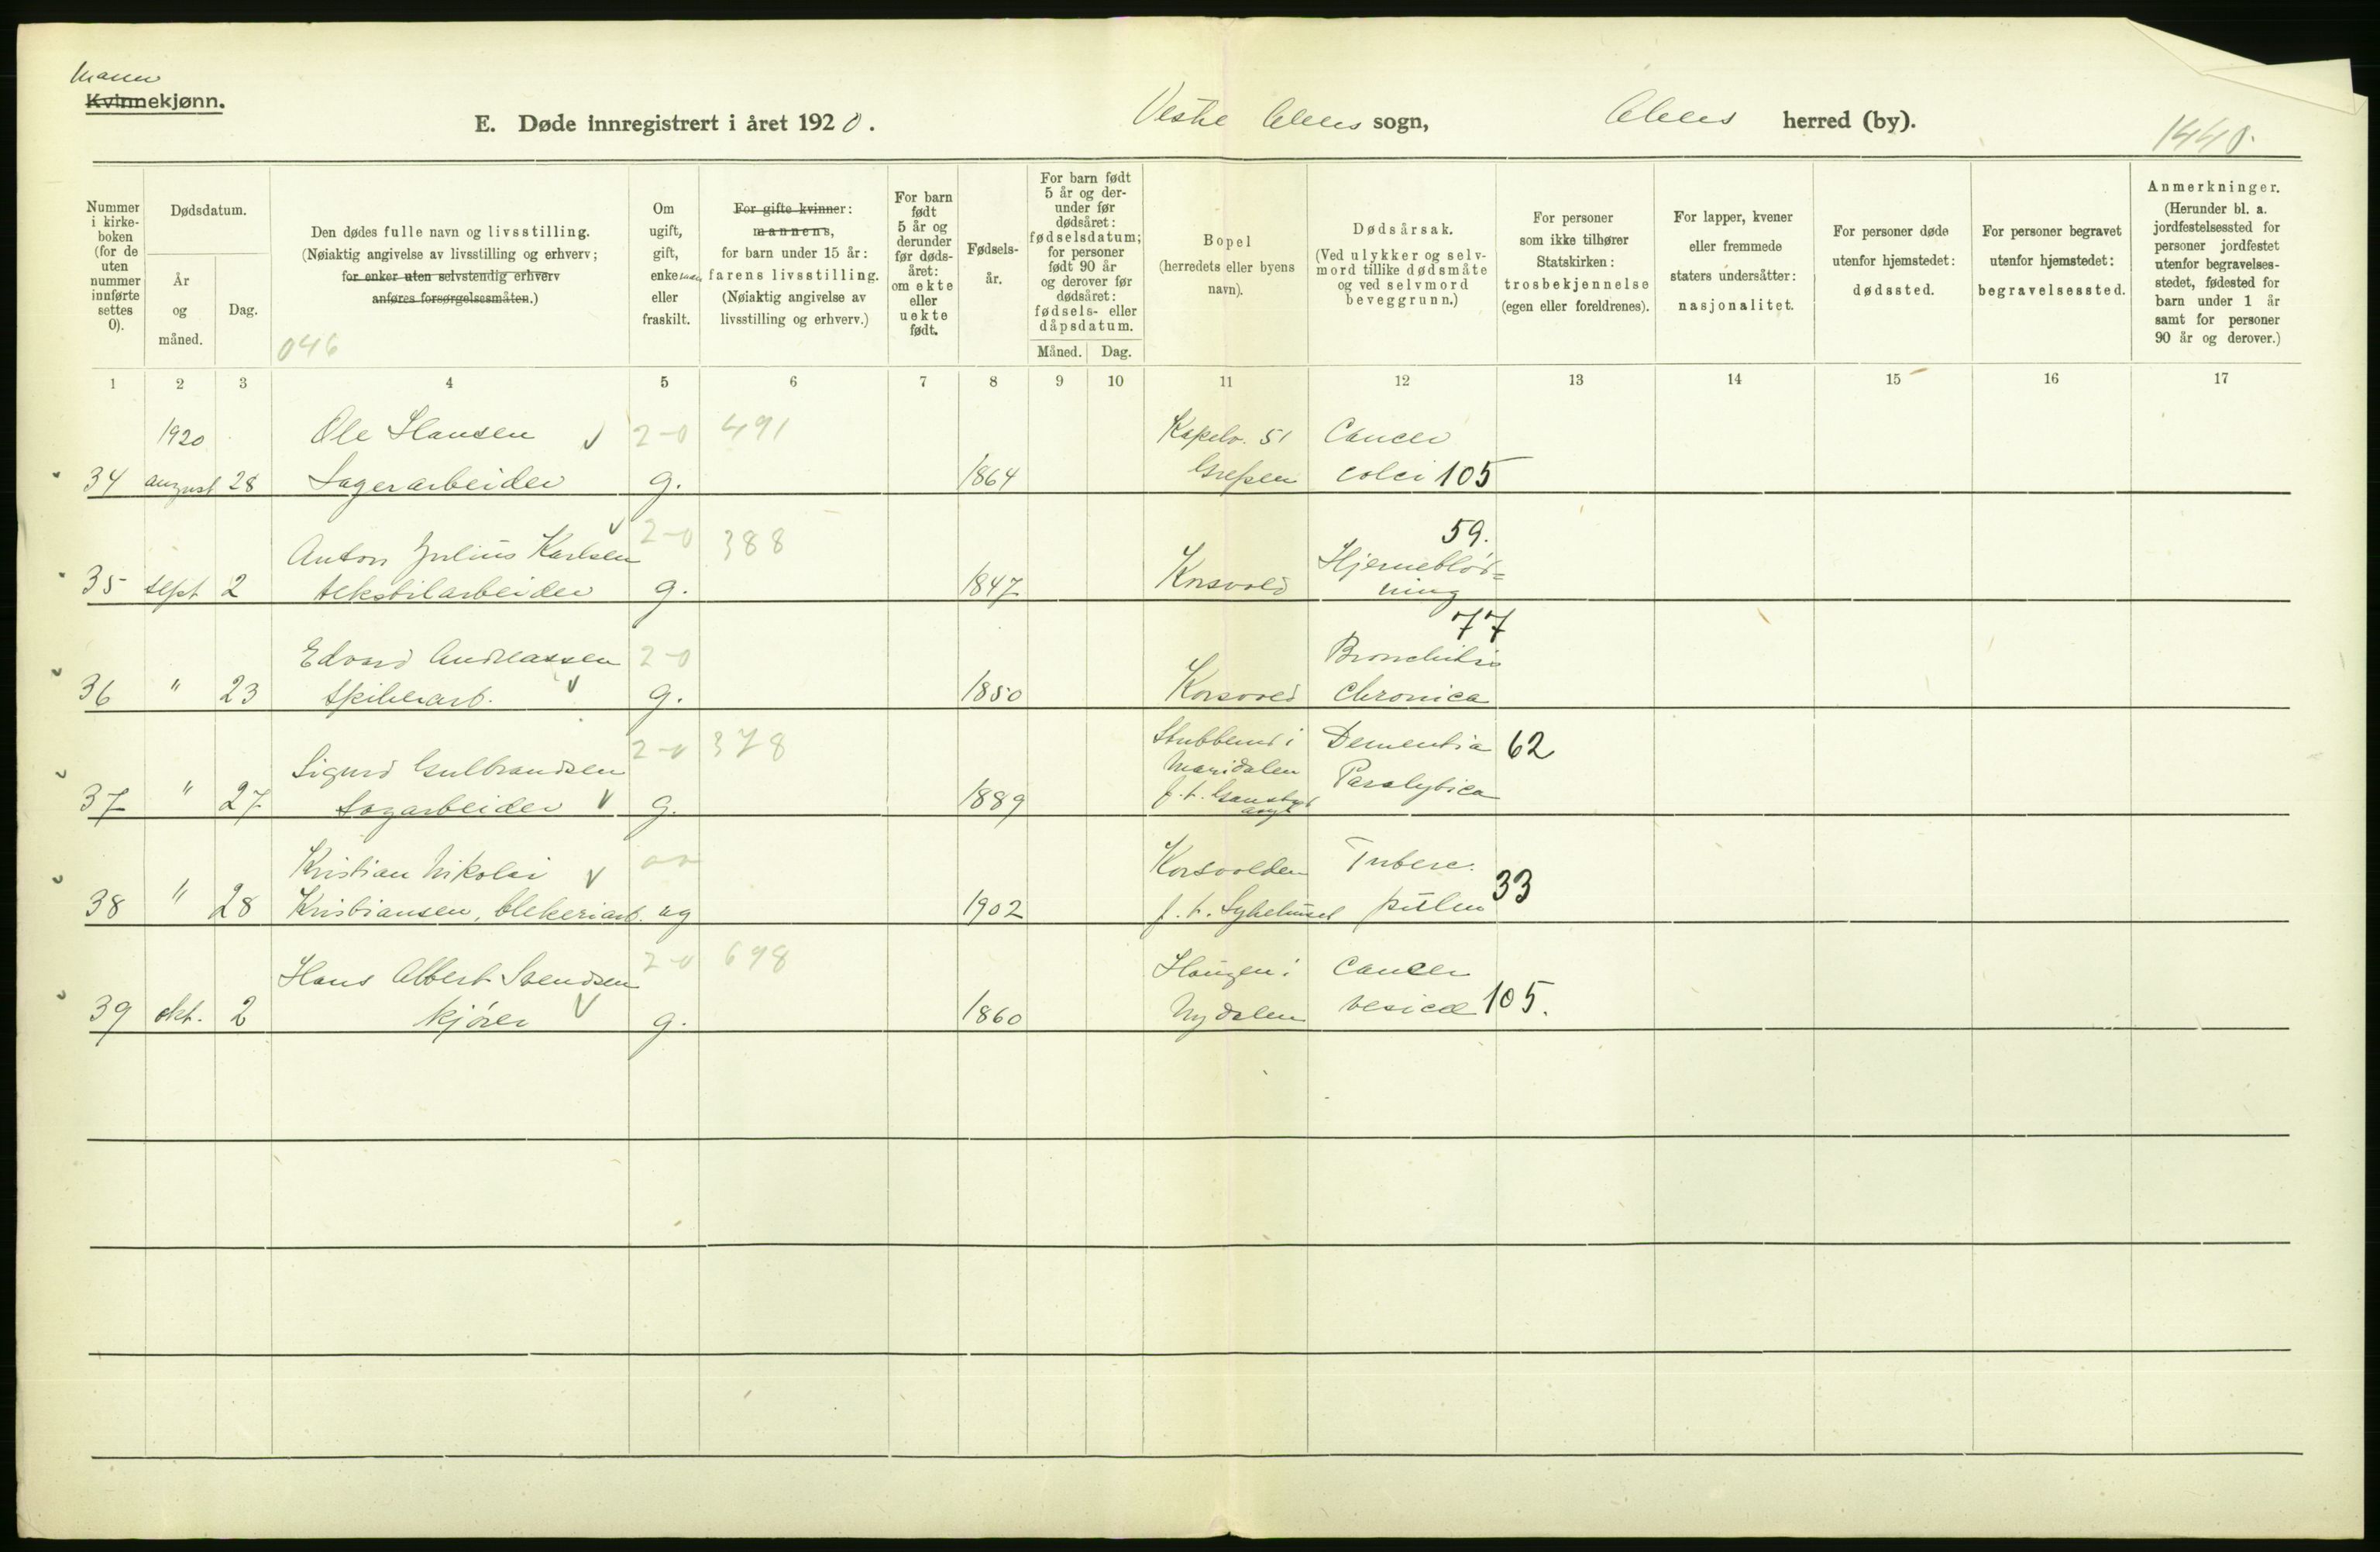 Mann
Kvinnekjønn.
E. Døde innregistrert i året 1920.
Vestre Akers sogn,
Akers herred (by).
1440.
Nummer i kirke-boken (for de uten nummer innførte settes 0).
Dødsdatum.
År og måned.
Dag.
Den dødes fulle navn og livsstilling.
(Nøiaktig angivelse av livsstilling og erhverv;
for enker uten selvstendig erhverv
anføres forsørgelsesmåten.)
046
Om ugift, gift, enke eller fraskilt.
For gifte kvinner:
mannens,
for barn under 15 år:
farens livsstilling.
(Nøiaktig angivelse av
livsstilling og erhverv.)
For barn født 5 år og derunder før døds-året: om ekte eller uekte født.
Fødsels-år.
For barn født 5 år og der-under før dødsåret: fødselsdatum; for personer født 90 år og derover før dødsåret: fødsels- eller dåpsdatum.
Måned. Dag.
Bopel
(herredets eller byens
navn).
Dødsårsak.
(Ved ulykker og selv-
mord tillike dødsmåte
og ved selvmord
beveggrunn.)
For personer
som ikke tilhører
Statskirken:
trosbekjennelse
(egen eller foreldrenes).
For lapper, kvener
eller fremmede
staters undersåtter:
nasjonalitet.
For personer døde
utenfor hjemstedet:
dødssted.
For personer begravet
utenfor hjemstedet:
begravelsessted.
Anmerkninger.
(Herunder bl. a.
jordfestelsessted for
personer jordfestet
utenfor begravelses-
stedet, fødested for
barn under 1 år
samt for personer
90 år og derover.)
1 2 3 4 5 6 7 8 9 10 11 12 13 14 15 16 17
1920 Ole Hansen 2-0 491 Kapelv. 51 Cancer
34 august 28 Lagerarbeider g. 1864 Grefsen coli 105
Anton Julius Karlsen 2-0 388 59. Hjerneblød=
35 sept 2 tekstilarbeider g. 1847 Korsvold ning
77
Edvard Andreassen 2-0 Bronchitis
36 " 23 spikerarb. g. 1850 Korsvold chronica
Sigurd Gulbrandsen 2-0 378 Stubberud i Maridalen Dementia 62
37 " 27 sagarbeider g. 1889 f. t. Gaustad asyl Paralytica
Kristian Nikolai Korsvolden Tuberc.
38 " 28 Kristiansen, blekeriarb. ug 1902 f. t. Sykehuset pulm 33
Hans Albert Svendsen 2-0 698 Haugen i Cancer
39 okt. 2 kjører g. 1860 Nydalen vesicæ 105.